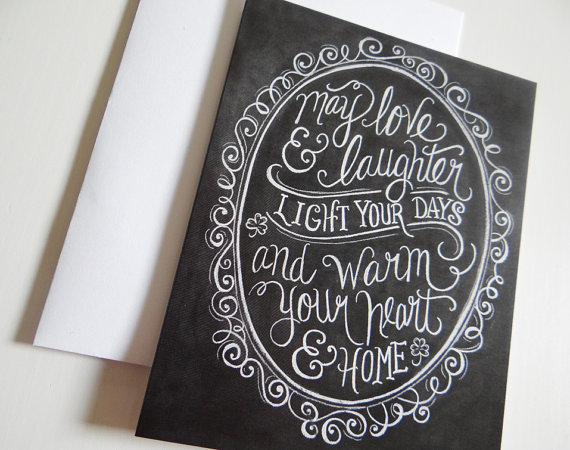 may love
& laughter
LIGHT YOUR DAYS
and warm
your heart
& HOME